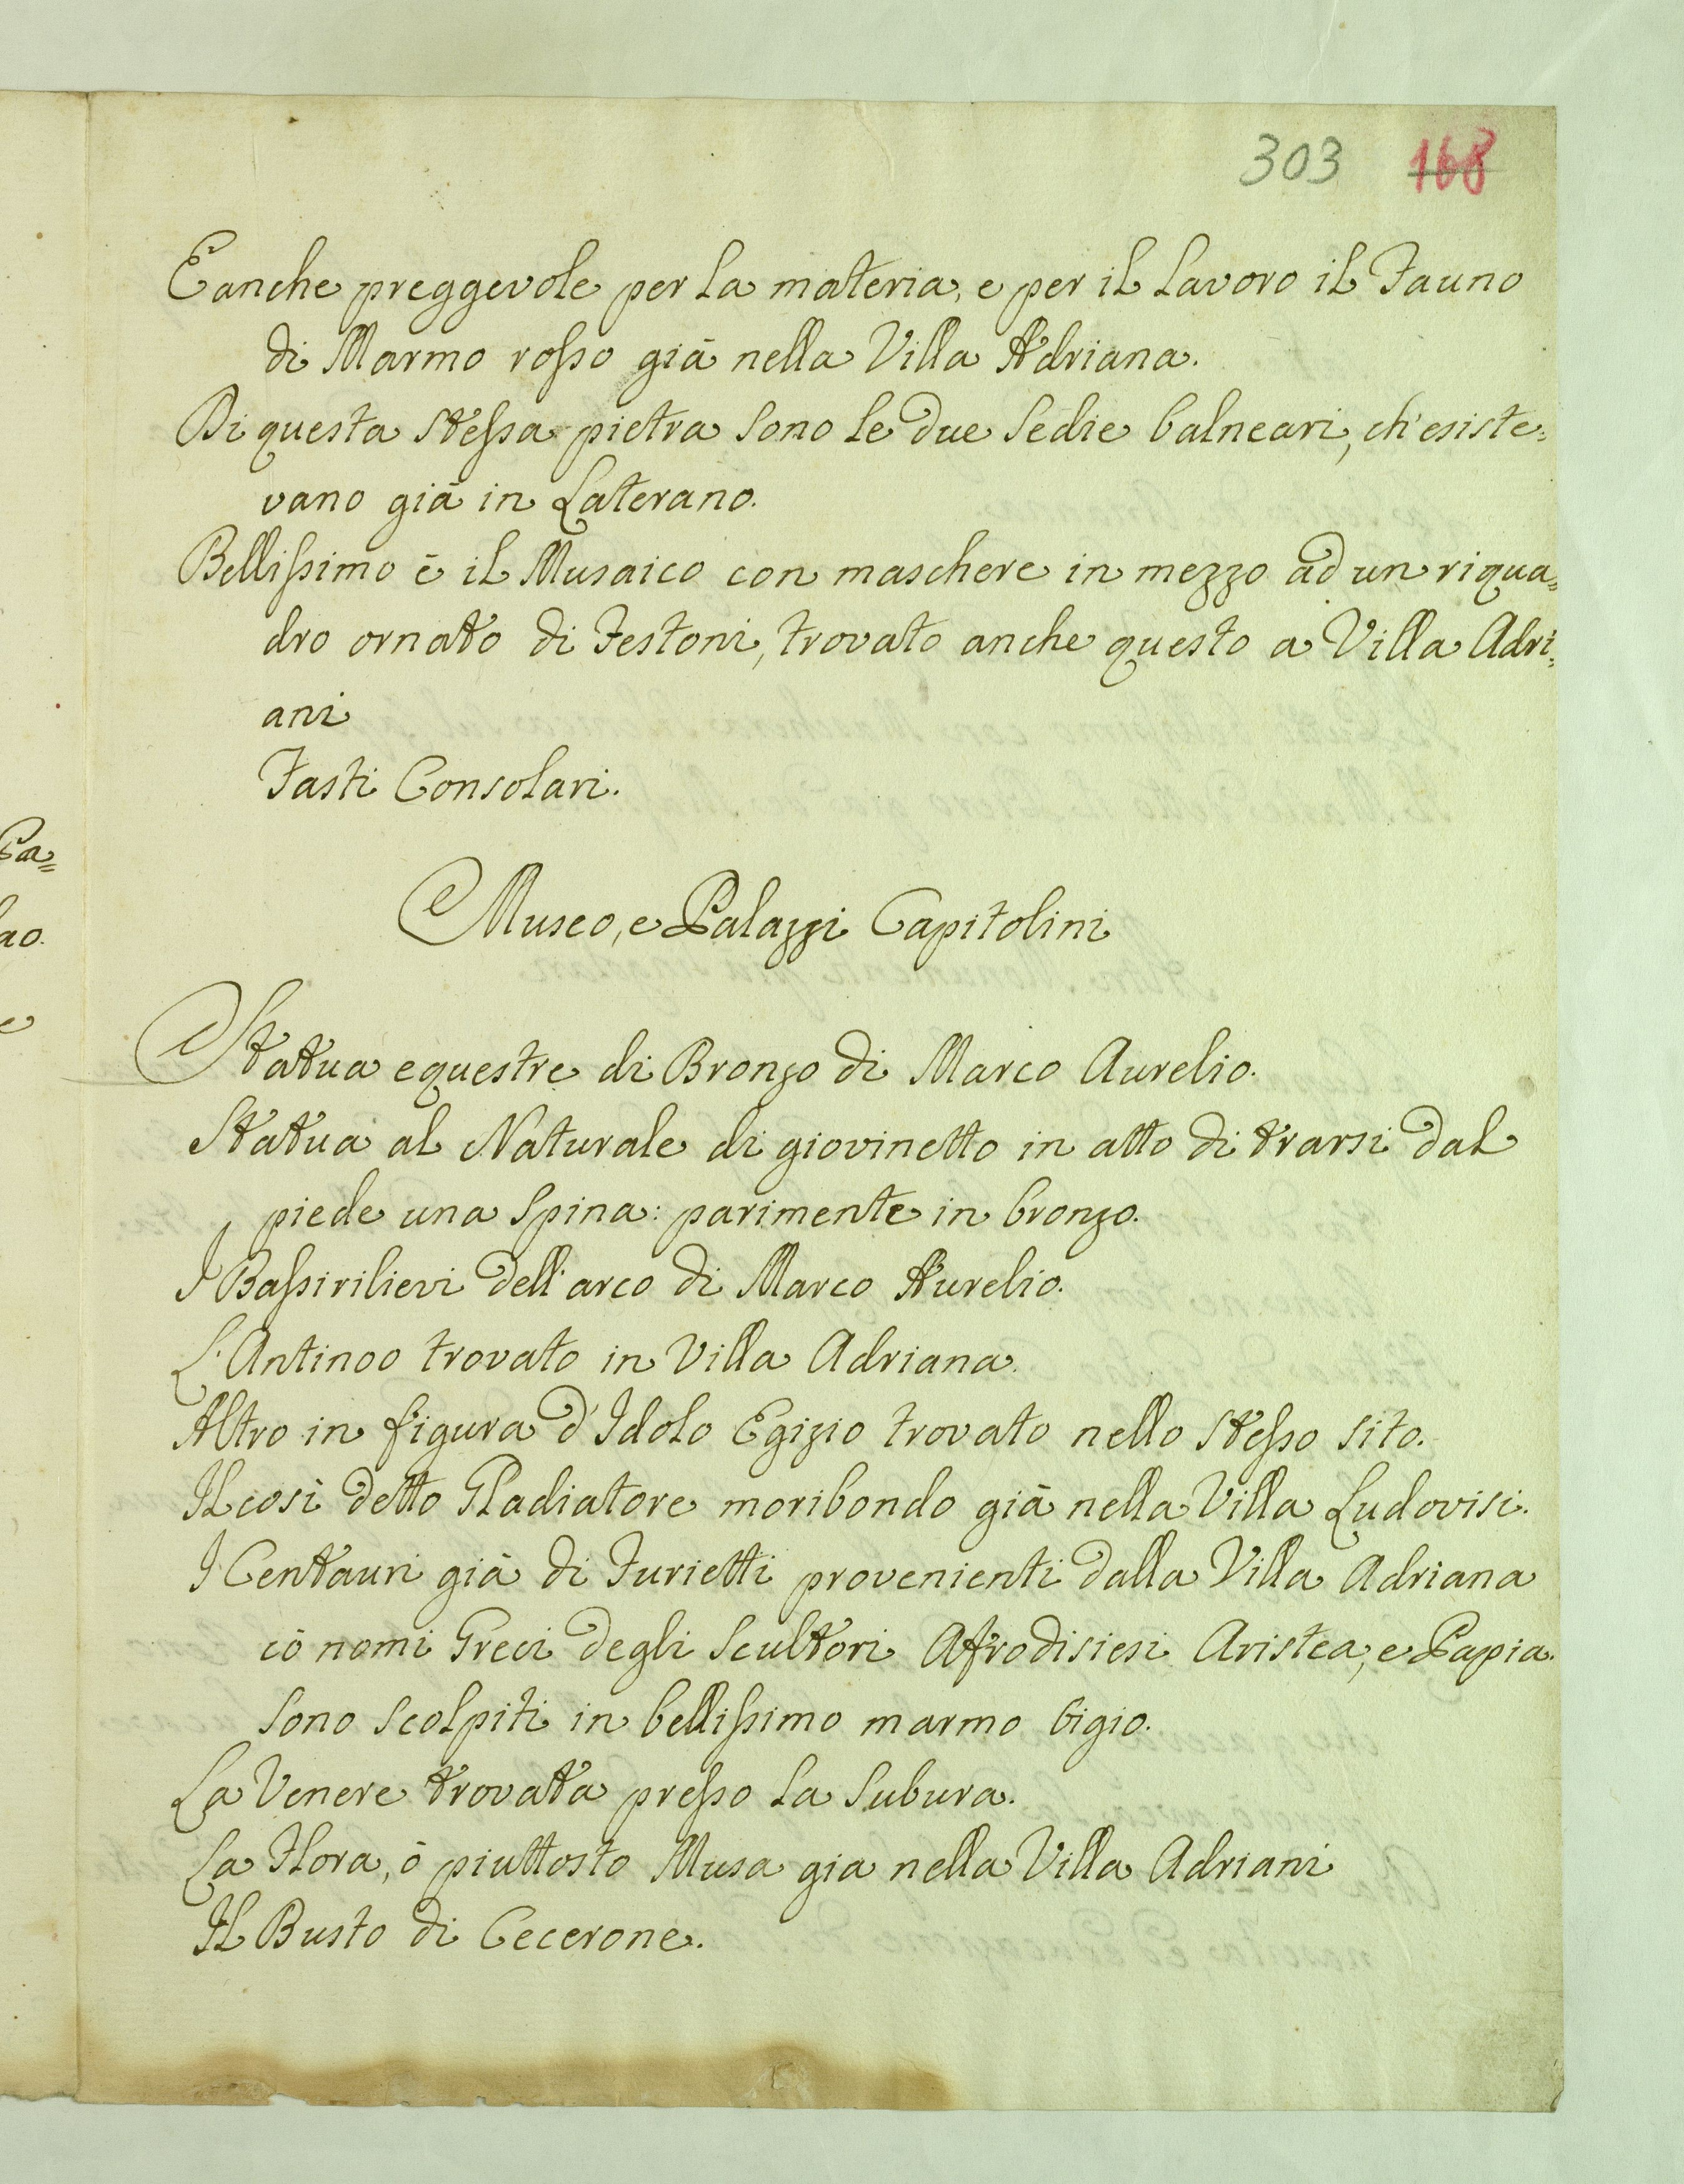 303 168
E anche preggevole per la materia, e per il lavoro il Fauno
di Marmo rosso già nella Villa Adriana.
Di questa stessa pietra sono le due sedie balneari, ch'esiste=
vano già in Laterano.
Bellissimo è il Musaico con maschere in mezzo ad un riqua=
dro ornato di Festoni, trovato anche questo a Villa Adri=
ani
Fasti Consolari.
Museo, e Palazzi Capitolini
Statua equestre di Bronzo di Marco Aurelio.
Statua al Naturale di giovinetto in atto di trarsi dal
piede una spina: parimente in bronzo.
I Bassirilievi dell'arco di Marco Aurelio.
L'Antinoo trovato in Villa Adriana.
Altro in figura d'Idolo Egizio trovato nello stesso sito.
Il così detto Gladiatore moribondo già nella Villa Ludovisi.
I Centauri già di Furietti provenienti dalla Villa Adriana
cō nomi Greci degli Scultori Afrodisiesi Aristea, e Papia.
sono scolpiti in bellissimo marmo bigio.
La Venere trovata presso la Subura.
La Flora, ò piuttosto Musa gia nella Villa Adriani
Il Busto di Cecerone.